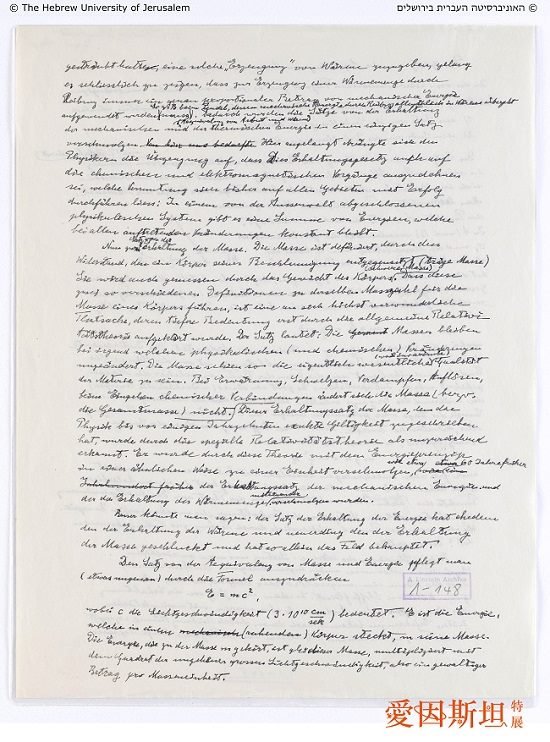 © The Hebrew University of Jerusalem
האוניברסיטה העברית בירושלים ©
gesträubt hatten, eine solche „Erzeugung" von Wärme zuzugeben, gelang
es schliesslich zu zeigen, dass zur Erzeugung einer Wärmemenge durch
Reibung immer ein genau proportionaler Betrag von mechanischer Energie
aufgewendet werden
(Äquivalenz von Arbeit und Wärme)
der mechanischen und der thermischen Energie in einen einzigen Satz
verschmolzen. Hier
Physikern die Überzeugung auf, dass Erhaltungsgesetz auch auf
die chemischen und elektromagnetischen Vorgänge auszudehnen
sei, welche Vermutung sich bisher auf allen Gebieten mit Erfolg
durchführen liess: In einem von der Aussenwelt abgeschlossenen
physikalischen System gibt es eine Summe von Energien, welche
bei allen auftretenden Änderungen konstant bleibt.
Satz von der
Nun zum Erhaltung der Masse. Die Masse ist definiert durch den
Widerstand, den ein Körper seiner Beschleunigung entgegensetzt (träge Masse)
(schwere Masse)
Sie wird auch gemessen durch das Gewicht des Körpers. Dass diese
zwei so verschiedenen Definitionen zu derselben Masszahl für die
Masse eines Körpers führen, ist eine an sich höchst verwunderliche
Tatsache, deren tiefere Bedeutung erst durch die allgemeine Relativi-
tätstheorie aufgeklärt wurde. Der Satz lautet: Die Massen bleiben
bei irgend welchen physikalischen (und chemischen) Veränderungen
ungeändert. Die Masse schien so die eigentliche wesentliche Qualität
(weil unveränderte)
der Materie zu sein. Bei Erwärmung, Schmelzen, Verdampfen, Auflösen,
beim Eingehen chemischer Verbindungen ändert sich die Masse (bezw.
die Gesamtmasse) nicht. Dieser Erhaltungssatz der Masse, dem die
Physik bis vor einigen Jahrzehnten exakte Gültigkeit zugeschrieben
hat, wurde durch die spezielle Relativitätstheorie als unzureichend
erkannt. Er wurde durch diese Theorie mit dem Energieprinzip
in einer ähnlichen Weise zu einer Einheit verschmolzen, wie etwa 60 Jahre früher
Jahrhundert früher der Erhaltungssatz der mechanischen Energie und
der die Erhaltung der Wärmemenge miteinander verschmolzen wurden.
könnte man sagen: der Satz der Erhaltung der Energie hat ehedem
den der Erhaltung der Wärme und neuerding den der Erhaltung
der Masse geschluckt und hat so allein das Feld behauptet.
Den Satz von der Aequivalenz von Masse und Energie pflegt man
(etwas ungenau) durch die Formel auszudrücken
E = mc²,
wobei c die Lichtgeschwindigkeit (3·10¹⁰ cm/sek) bedeutet. E ist die Energie,
welche in einem (ruhenden) Körper steckt, m seine Masse.
Die Energie, die zu der Masse m gehört, ist gleich dieser Masse, multipliziert mit
dem Quadrat der ungeheuer grossen Lichtgeschwindigkeit, also ein gewaltiger
Betrag pro Masseneinheit.
1-148
愛因斯坦 特展